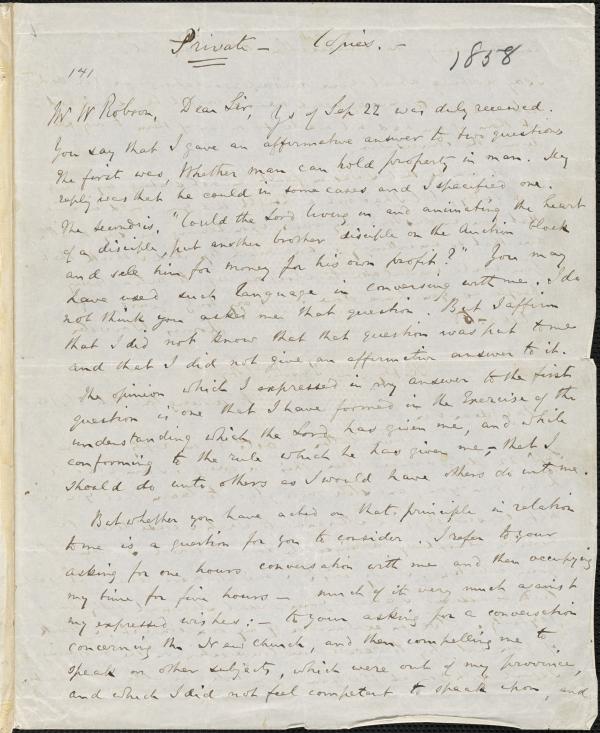 Private - Copies. -
1858
141
Mr W Robson, Dear Sir, Yrs of Sep 22 was duly received.
You say that I gave an affirmative answer to two questions
The first was, Whether man can hold property in man. My
reply was that he could in some cases and I specified one.
The second is, "Could the Lord living in and animating the heart
of a disciple, put another brother disciple on the Auction block
and sell him for money for his own profit?" You may
have used such language in conversing with me. I do
not think you asked me that question. But I affirm
that I did not know that that question was put to me
and that I did not give an affirmative answer to it.
The opinion which I expressed in my answer to the first
question is one that I have formed in the Exercise of the
understanding which the Lord has given me, and while
conforming to the rule which he has given me, - that I
should do unto others as I would have others do unto me.
But whether you have acted on that principle in relation
to me is a question for you to consider. I refer to your
asking for one hours conversation with me and then occupying
my time for five hours - much of it very much against
my expressed wishes: - to your asking for a conversation
concerning the New Church, and then compelling me to
speak on other subjects, which were out of my province,
and which I did not feel competent to speak upon, and